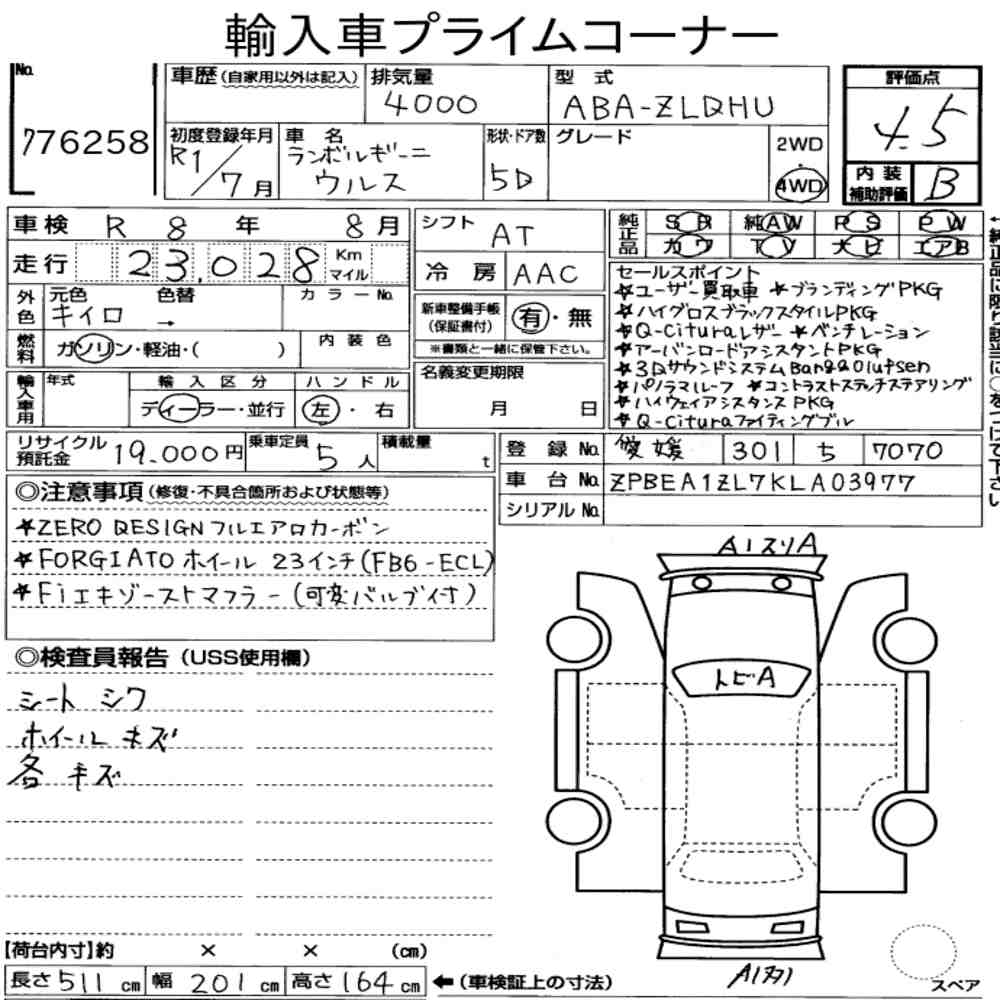 輸入車プライムコーナー
No.
776258
車歴(自家用以外は記入)
排気量
4000
型 式
ABA-ZLDHU
評価点
4.5
初度登録年月
R1/7月
車 名
ランボルギーニ
ウルス
形状・ドア数
5D
グレード
2WD
・
4WD
内装
補助評価
B
車検 R 8 年 8 月
走行 23,028 Km
マイル
シフト
AT
冷 房 AAC
純正品
SR 純AW PS PW
カワ TV ナビ エアB
外色
元色 色替 カラーNo.
キイロ →
燃料
ガソリン・軽油・( )
内 装 色
新車整備手帳
(保証書付)
有・無
※書類と一緒に保管下さい。
セールスポイント
★ユーザー買取車 ★ブランディングPKG
★ハイグロスブラックスタイルPKG
★Q-Cituraレザー ★ベンチレーション
★アーバンロードアシスタントPKG
★3DサウンドシステムBang&Olufsen
★パノラマルーフ ★コントラストステッチステアリング
★ハイウェイアシスタンスPKG
★Q-Cituraファイティングブル
輸入車用
年式
輸 入 区 分
ディーラー・並行
ハ ン ド ル
左・右
名義変更期限
月 日
リサイクル
預託金
19,000円
乗車定員
5人
積載量
t
登 録 No. 愛媛 301 ち 7070
車 台 No. ZPBEA1ZL7KLA03977
シリアル No.
◎注意事項(修復・不具合箇所および状態等)
★ZERO DESIGNフルエアロカーボン
★FORGIATOホイール 23インチ(FB6-ECL)
★Fiエキゾーストマフラー(可変バルブ付)
◎検査員報告(USS使用欄)
シート シワ
ホイール キズ
各 キズ
A1スリA
トビA
スペア
【荷台内寸】約 × × (cm)
長さ511cm 幅 201cm 高さ164cm ←(車検証上の寸法)